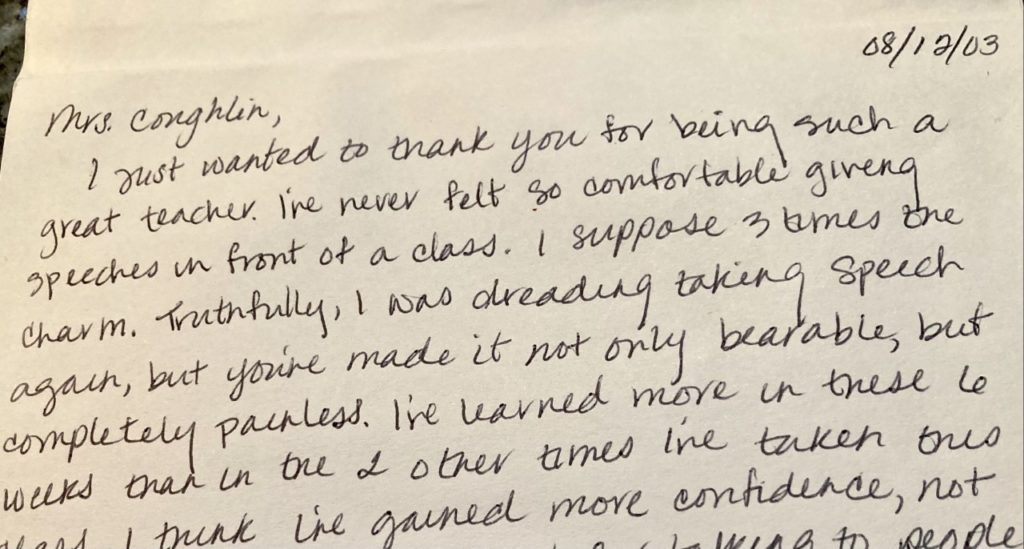 08/12/03
Mrs. Coughlin,
I just wanted to thank you for being such a
great teacher. I've never felt so comfortable giving
speeches in front of a class. I suppose 3 times the
charm. Truthfully, I was dreading taking speech
again, but you've made it not only bearable, but
completely painless. I've learned more in these 6
weeks than in the 2 other times I've taken this
I think I've gained more confidence, not
talking to people